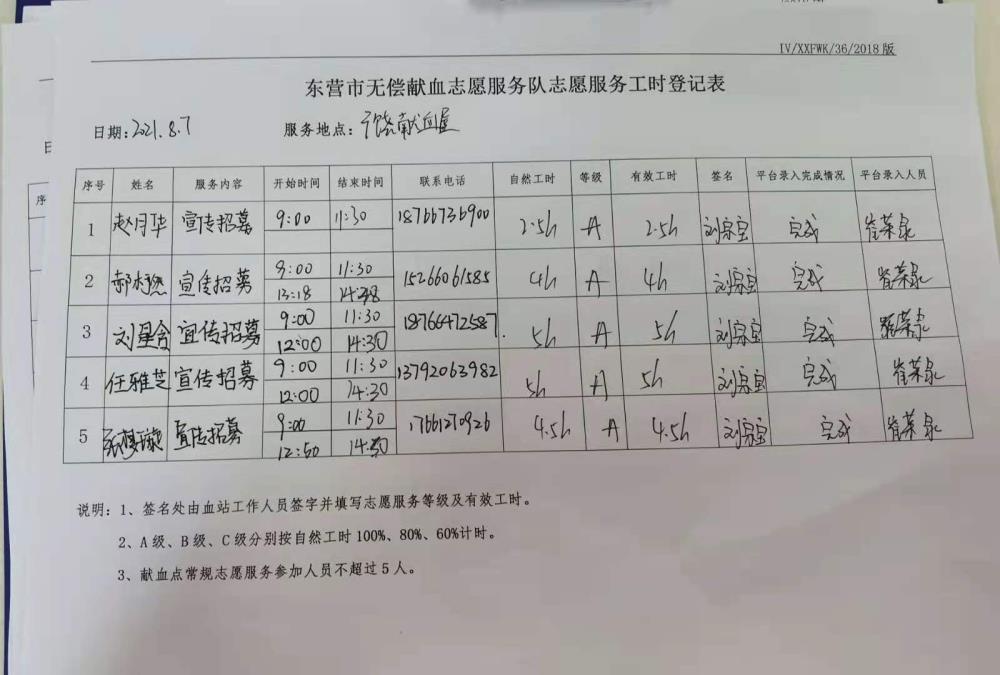 IV/XXFWK/36/2018 版
东营市无偿献血志愿服务队志愿服务工时登记表
日期:2021.8.7 服务地点:广饶献血屋
序号 姓名 服务内容 开始时间 结束时间 联系电话 自然工时 等级 有效工时 签名 平台录入完成情况 平台录入人员
1 赵月华 宣传招募 9:00 11:30 18766736900 2.5h A 2.5h 刘宗宝 完成 崔荣泉
2 宣传招募 9:00 11:30 15266061585 4h A 4h 刘宗宝 完成 崔荣泉
13:18 14:48
3 刘星含 宣传招募 9:00 11:30 18766472587 5h A 5h 刘宗宝 完成 崔荣泉
12:00 14:30
4 任雅芝 宣传招募 9:00 11:30 13792063982 5h A 5h 刘宗宝 完成 崔荣泉
12:00 14:30
5 宣传招募 9:00 11:30 17661270926 4.5h A 4.5h 刘宗宝 完成 崔荣泉
12:50 14:50
说明:1、签名处由血站工作人员签字并填写志愿服务等级及有效工时。
2、A 级、B 级、C 级分别按自然工时 100%、80%、60%计时。
3、献血点常规志愿服务参加人员不超过 5 人。